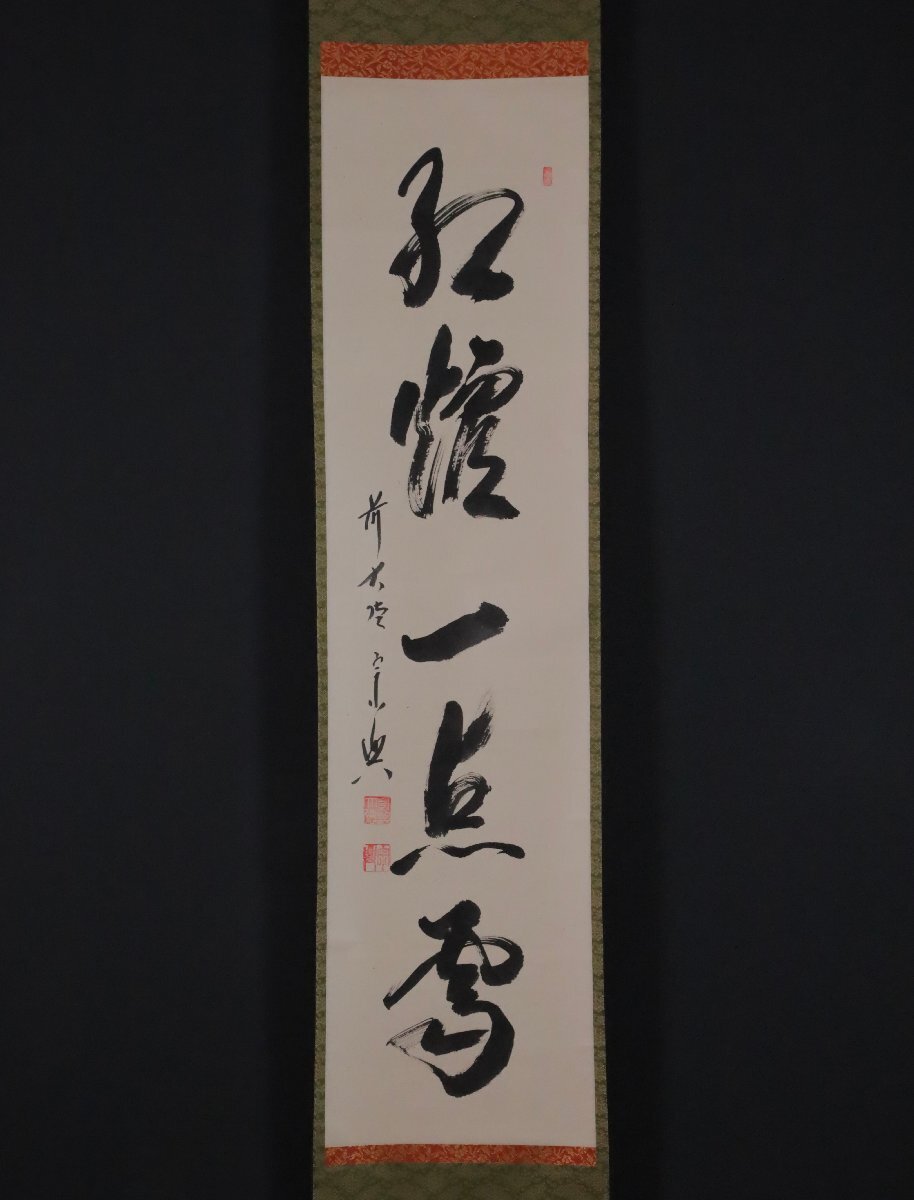 紅爐一点雪
前大徳宗典